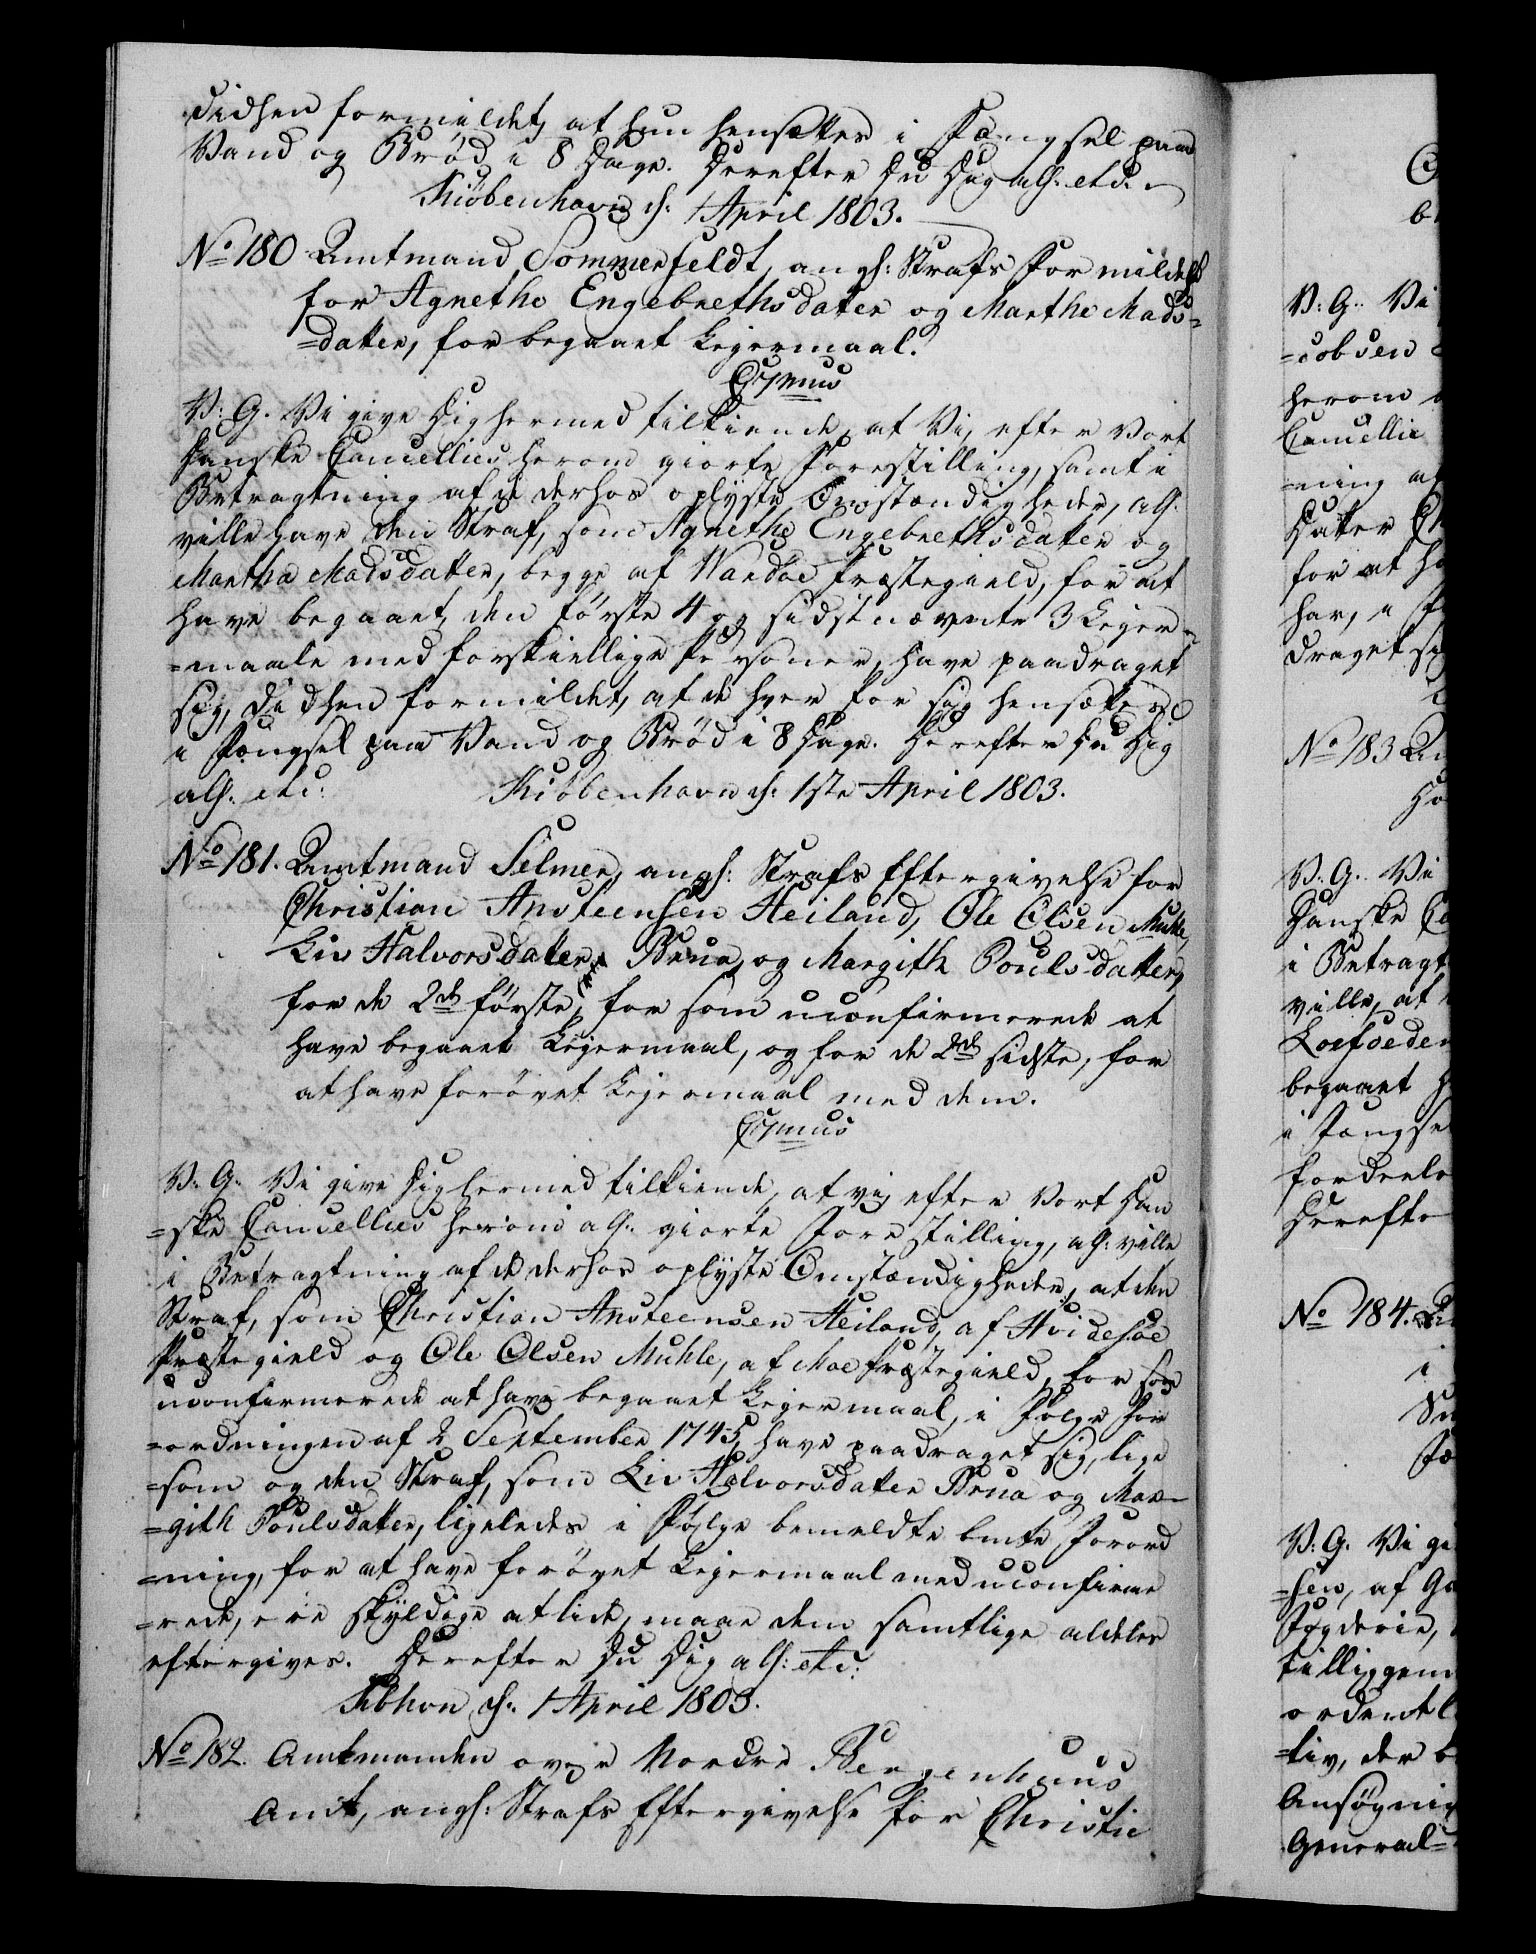 didhen formildet, at hun hensættes i Fængsel paa
Vand og Brød i 8 Dage. Derefter Du Dig allr: etc.
Kiøbenhavn d: 1 April 1803.
No 180 Amtmand Sommerfeldt, angl: Strafs Formildelse
for Agnethe Engebrethsdatter og Marthe Mads=
=datter, for begaaet Leiermaal.
C7mus
V: G. Vi give Dig hermed tilkiende, at Vi, efter Vort
Danske Cancellies herom giorte Forestilling, samt i
Betragtning af de derhos oplyste Omstændigheder, allr.
ville have den Straf, som Agnethe Engebrethsdatter og
Martha Madsdatter, begge af Vardøe Præstegield, for at
have begaaet, den første 4 og sidstnævnte 3 Leier=
=maale med forskiellige Personer, have paadraget
sig, didhen formildet, at de hver for sig hensættes
i Fængsel paa Vand og Brød i 8 Dage. Derefter Du Dig
allr. etc: Kiøbenhavn d: 1ste April 1803.
No 181. Amtmand Selmer, angl: Strafs Eftergivelse for
Christian Ansteensen Heiland, Ole Olsen Muhle,
Liv Halvorsdatter Brua, og Margith Poulsdatter,
for de 2de første, for som uconfirmerede at
have begaaet Leiermaal, og for de 2de sidste, for
at have forøvet Leiermaal med dem.
C7mus
V. G. Vi give Dig hermed tilkiende, at vi, efter Vort Dan
=ske Cancellies herom allr. giorte Forestilling, allr. ville
i Betragtning af de derhos oplyste Omstændigheder, at den
Straf, som Christian Ansteensen Heiland, af Hvidesøe
Præstegield og Ole Olsen Muhle, af Moe Præstegield, for som
uconfirmerede at have begaaet Leiermaal, i Følge For
=ordningen af 2 September 1745, have paadraget sig, lige
=som og den Straf, som Liv Halvorsdatter Brua og Mar=
=gith Poulsdatter, ligeledes i Følge bemeldte Forord
=ning, for at have forøvet Leiermaal med uconfirme
=rede, ere skyldige at lide, maae dem samtlige aldeles
eftergives. Derefter Du Dig allr: etc:
Kbhvn d: 1 April 1803.
No 182. Amtmanden over Nordre Bergenhuus
Amt, angl: Strafs Eftergivelse for Christie
V: G. Vi
=cobsen
herom
Cancellie
=ning af
Datter
for at ha
har, i
draget si
No 183 Am
V. G. Vi
Danske Ca
i Betragt
ville, at
Lofoeden
begaaet
i Fængse
fordeele
Derefte
No 184.
i
V: G. Vi gi
=sen, af
Fogderie,
tilliggen
ordentl
=tiv, der b
Ansøgnin
General=